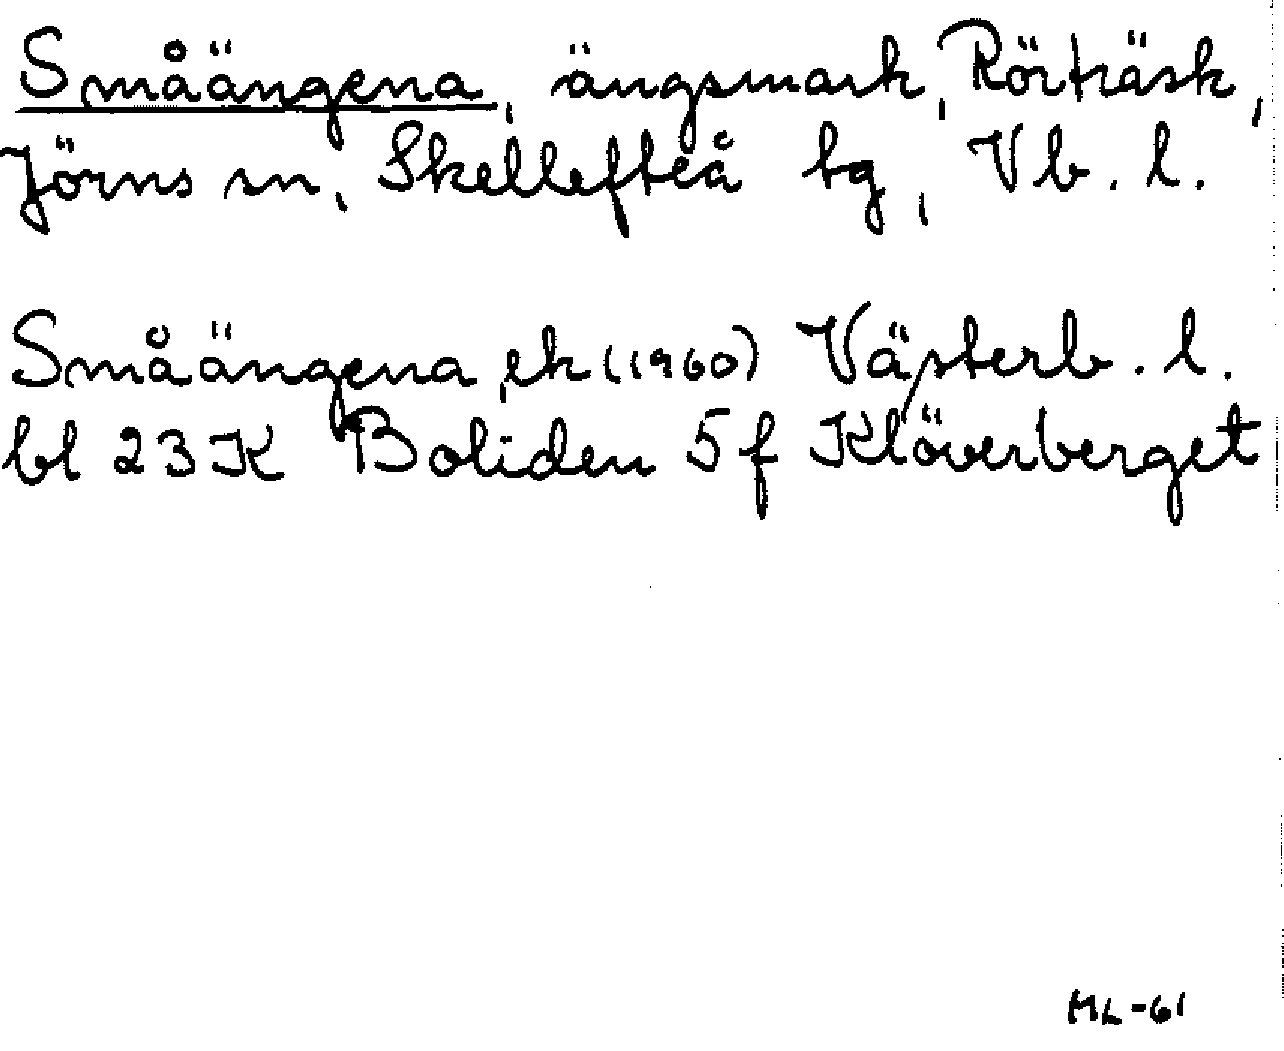 Småängena, ängsmark, Rörträsk,
Jörns sn, Skellefteå tg, Vb. l.
Småängena, ek (1960) Västerb. l.
bl 23 K Boliden 5 f Klöverberget
ML-61